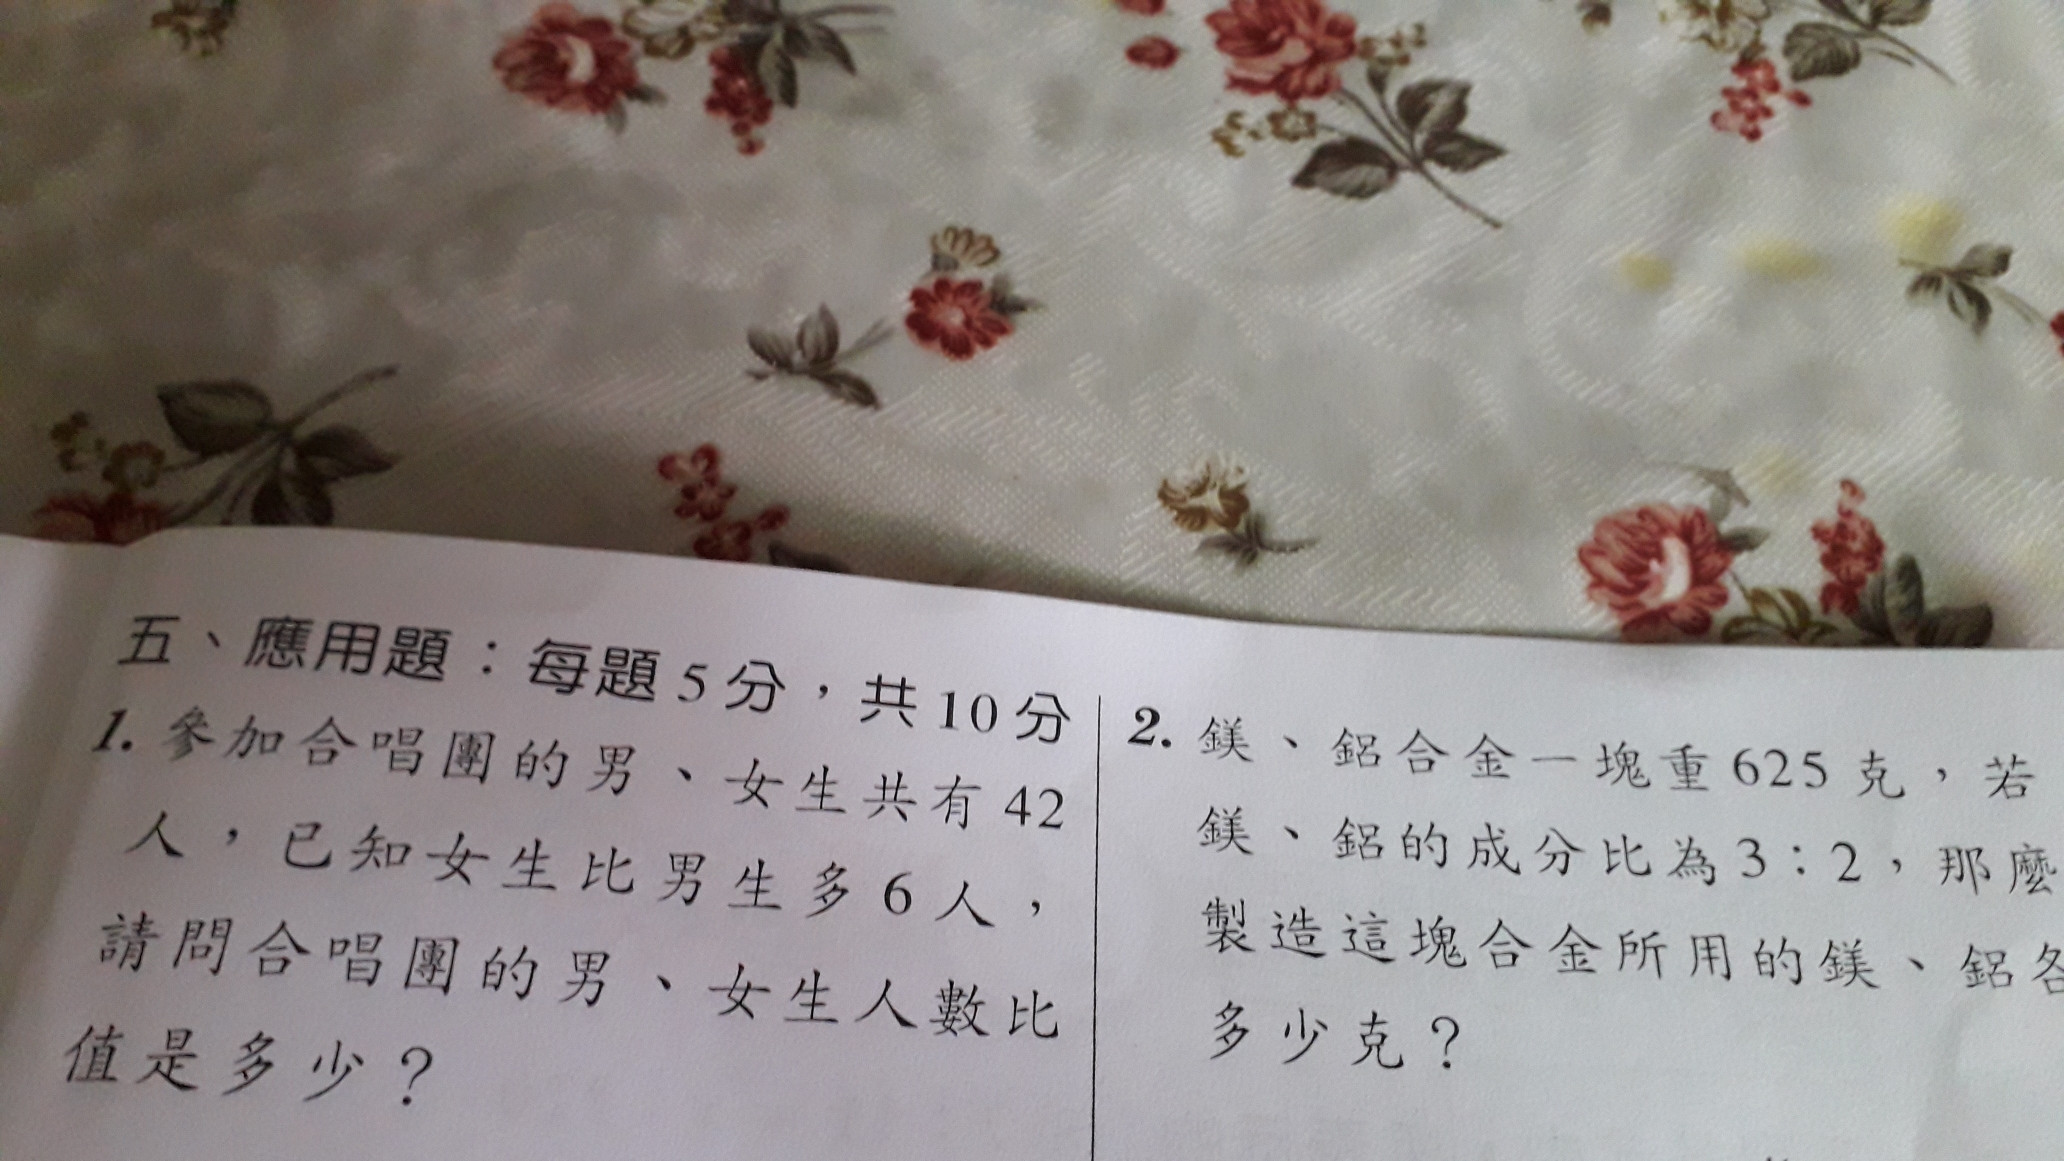 五、應用題：每題5分，共10分
1. 參加合唱團的男、女生共有42
人，已知女生比男生多6人，
請問合唱團的男、女生人數比
值是多少？
2. 鎂、鋁合金一塊重625克，若
鎂、鋁的成分比為3：2，那麼
製造這塊合金所用的鎂、鋁各
多少克？